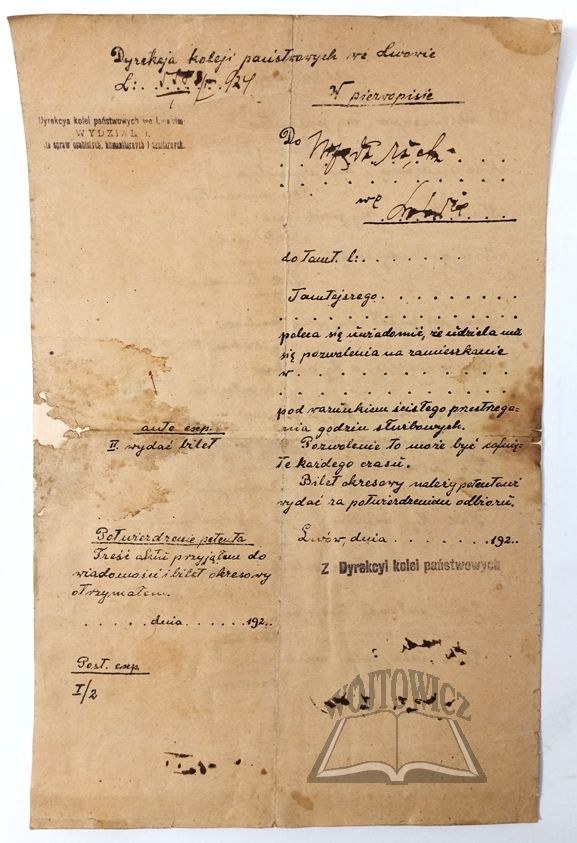 Dyrekcja koleji państwowych we Lwowie
L: 924
W pierwopisie
Dyrekcya kolei państwowych we Lwowie
WYDZIAŁ I.
dla spraw osobistych, humanitarnych i sanitarnych.
Do
we
do tamt. l: . . . . . . .
Tamtejszego . . . . . . . . .
poleca się uwiadomić, że udziela mu
się pozwolenia na zamieszkanie
w . . . . . . . . . . . . . .
pod warunkiem ścisłego przestrzega-
nia godzin służbowych.
Pozwolenie to może być cofnię-
te każdego czasu.
Bilet okresowy należy petentowi
wydać za potwierdzeniem odbioru.
Lwów, dnia . . . . . . . 192..
Z Dyrekcyi kolei państwowych
ante exp.
II. wydać bilet
Potwierdzenie petenta
Treść aktu przyjąłem do
wiadomości i bilet okresowy
otrzymałem.
. . . . . dnia . . . . . . 192..
Post. exp.
I/2
WÓJTOWICZ